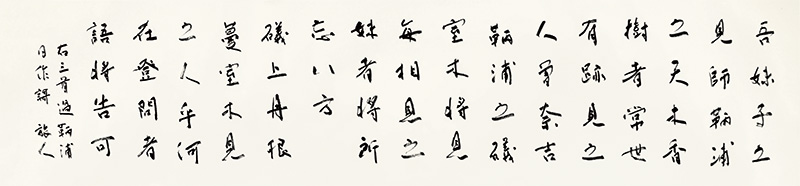 吾妹子之
見師鞆浦
之天木香
樹者常世
有跡見之
人曽奈吉
鞆浦之礒
室木将見
毎相見之
妹者将所
忘八方
礒上丹根
蔓室木見
之人乎何
在登問者
語将告可
右三首過鞆浦
日作謌 旅人